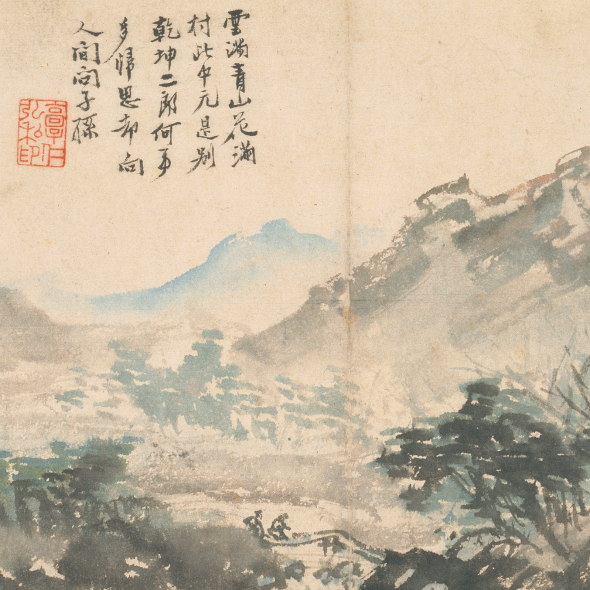 雲滿青山花滿
村此中元是別
乾坤二郎何事
多歸思却向
人間問子孫